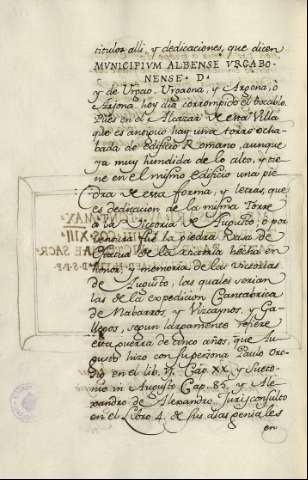 titulos alli, y dedicaciones, que dicen
MVNICIPIVM ALBENSE VRGABO-
NENSE · D ·
y de Vrgao, Vrgaona, y Argona, ò
Arjona hoy dia corrompido el bocablo.
Pues en el Alcazar de esta Villa
que es antiquo hay una torre ocha-
bada de edificio Romano, aunque
ya muy hundida de lo alto, y tie-
ne en el mismo edificio una pie-
dra de esta forma, y letras, que
es dedicacion de la misma Torre
à la Victoria de Augusto, ò por
ser la piedra Basa de
de la Victoria hecha en
honor, y memoria de las Victorias
de Augusto, las quales serian
las de la expedicion Cantabrica
de Nabarros, y Vizcaynos, y Ga-
llegos, segun largamente refiere
esta guerra de cinco años, que Au-
gusto hizo con su persona Paulo Oro-
sio en el lib. 6. Cap. XX. y Sueto-
nio in Augusto Cap. 85, y Ale-
xandro de Alexandro Jurisconsulto
en el Libro 4. de sus dias geniales
en